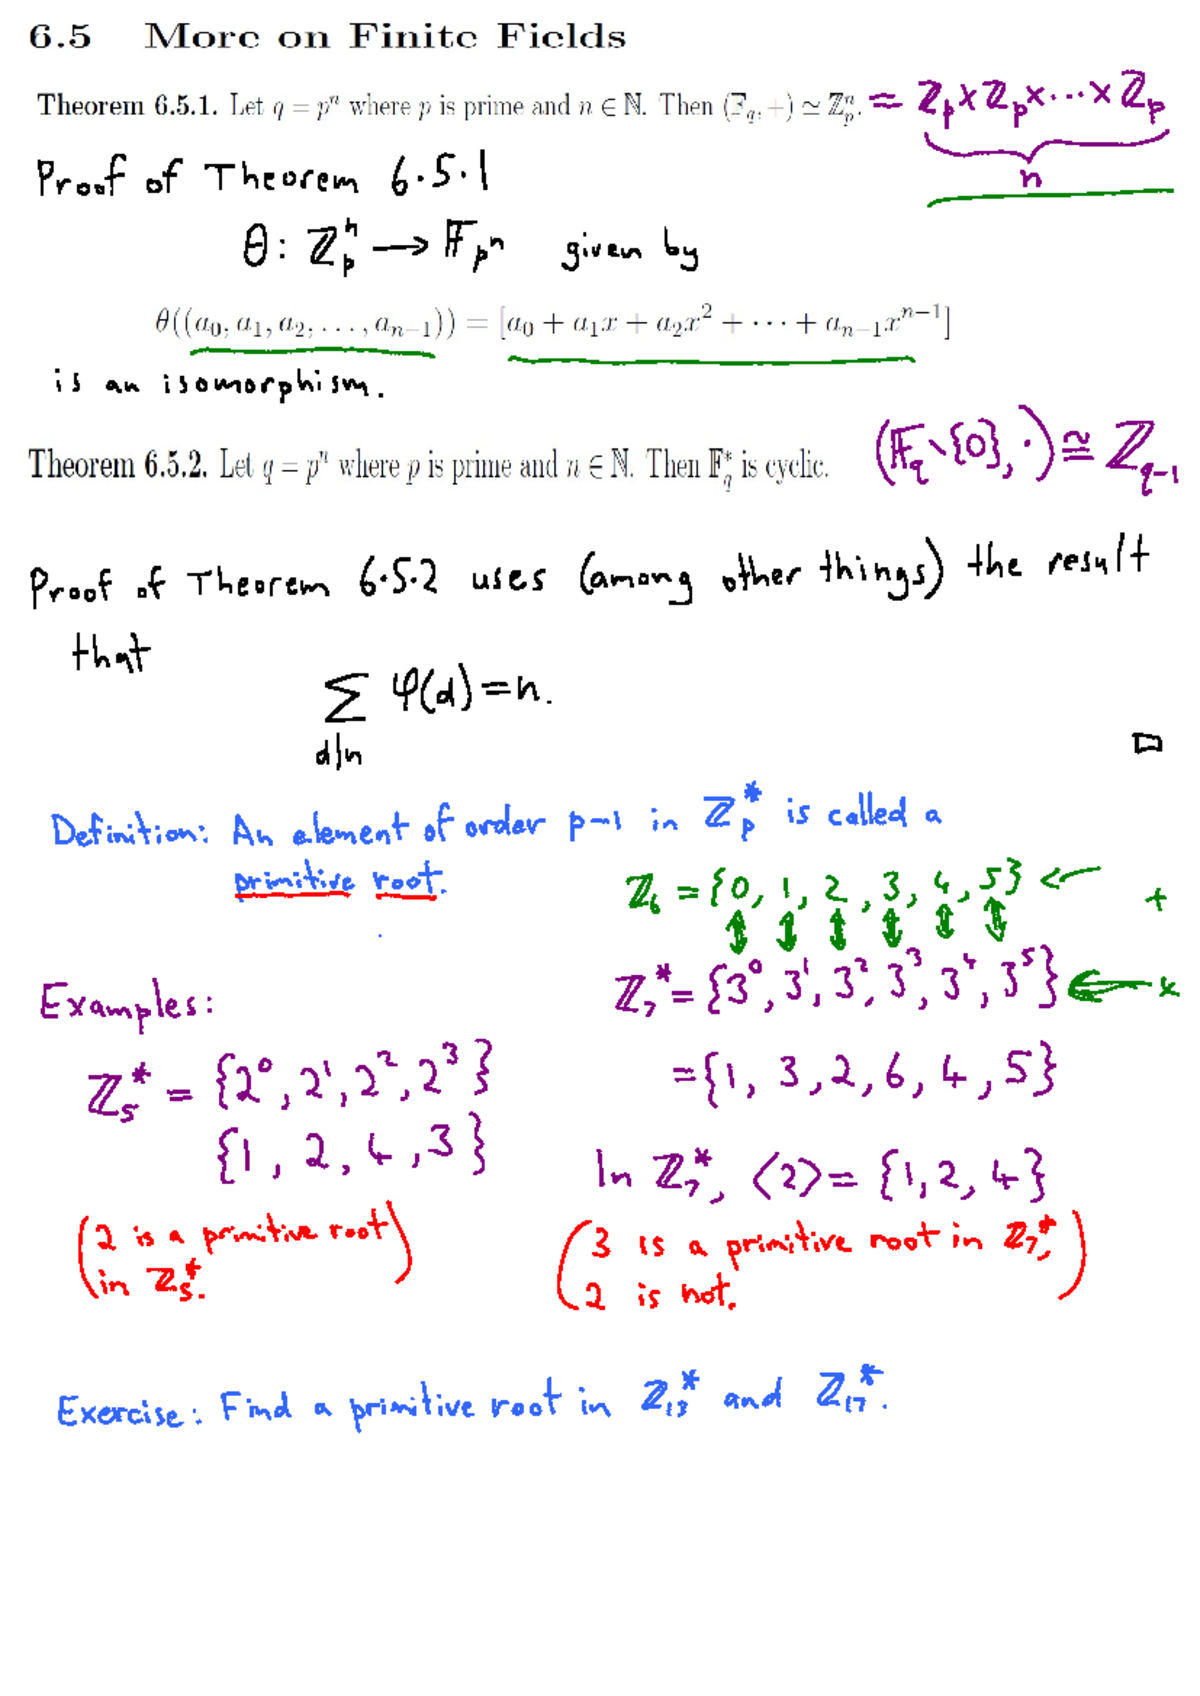 6.5 More on Finite Fields
Theorem 6.5.1. Let q = pⁿ where p is prime and n ∈ ℕ. Then (𝔽_q, +) ≃ ℤ_pⁿ. = ℤ_p × ℤ_p × ··· × ℤ_p
n
Proof of Theorem 6.5.1
θ: ℤ_pⁿ → 𝔽_pⁿ given by
θ((a₀, a₁, a₂, . . . , a_{n−1})) = [a₀ + a₁x + a₂x² + ··· + a_{n−1}x^{n−1}]
is an isomorphism.
Theorem 6.5.2. Let q = pⁿ where p is prime and n ∈ ℕ. Then 𝔽_q^* is cyclic. (𝔽_q∖{0}, ·) ≅ ℤ_{q-1}
Proof of Theorem 6.5.2 uses (among other things) the result
that
∑ φ(d) = n.
d|n
□
Definition: An element of order p-1 in ℤ_p^* is called a
primitive root.
ℤ₆ = {0, 1, 2, 3, 4, 5} ← +
↕ ↕ ↕ ↕ ↕ ↕
ℤ₇^* = {3⁰, 3¹, 3², 3³, 3⁴, 3⁵} ← ×
= {1, 3, 2, 6, 4, 5}
Examples:
ℤ₅^* = {2⁰, 2¹, 2², 2³}
{1, 2, 4, 3}
(2 is a primitive root
in ℤ₅^*.)
In ℤ₇^*, ⟨2⟩ = {1, 2, 4}
(3 is a primitive root in ℤ₇^*,
2 is not.)
Exercise: Find a primitive root in ℤ₁₃^* and ℤ₁₇^*.